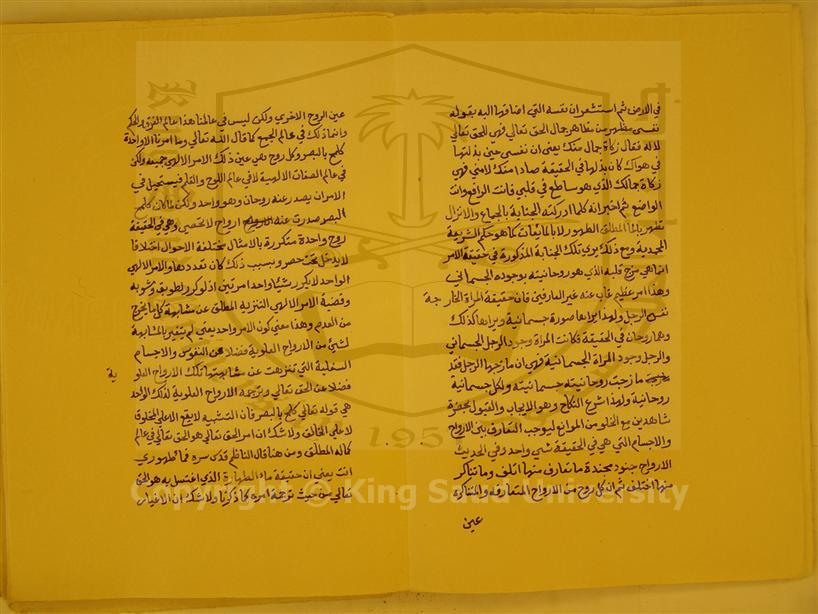 في الارض ثم استشعر ان نفسه التي اضافها اليه بقوله
نفسي مظهر من مظاهر جمال الحق تعالى فهي للحق تعالى
لاله فقال زكاة جمال منك يعني ان نفسي حين بذلتها
في هواك كان بذلها في الحقيقة صادرا منك لا مني فهي
زكاة جمالك الذي هو ساطع في قلبي فانت الرافع وانت
الواضع ثم اخبر انه كلما ادركته الجنابة بالجماع والانزال
تطهر بالماء المطلق الطهور لا بالمايعات كما هو حكم الشريعة
المحمدية ومع ذلك يرى تلك الجنابة المذكورة في حقيقة الامر
انما هي مزج قلبه الذي هو روحانيته بوجوده الجسماني
وهذا امر عظيم غاب عنه غير العارفين فان حقيقة المراة الخارجة
نفس الرجل ولهذا يراها صورة جسمانية ويراها كذلك
وهما روحان في الحقيقة فكانت المراة وجود الرجل الجسماني
والرجل وجود المراة الجسمانية فهي ان مازجها الرجل فقد
مازجت روحانيته جسمانيته ولكل جسمانية
روحانية ولهذا شرع النكاح وهو الايجاب والقبول بحضرة
شاهدين مع الخلو من الموانع ليوجب التعارف بين الارواح
والاجسام التي هي في الحقيقة شي واحد وفي الحديث
الارواح جنود مجندة ما تعارف منها ائتلف وما تناكر
منها اختلف ثم ان كل روح من الارواح المتعارفة والمتناكرة
عين
عين الروح الاخرى ولكن ليس في عالمنا هذا عالم الفرق
وانما ذلك في عالم الجمع كما قال الله تعالى وما امرنا الا واحدة
كلمح بالبصر وكل روح هي عين ذلك الامر الالهي جميعه ولكن
في عالم الصفات الالهية لا في عالم اللوح والقلم فيستحيل في
الامر ان يصدر عنه روحان وهو واحد ولكن لما كان كلمح
البصر صدرت عنه ارواح لا تحصى وهي في الحقيقة
روح واحدة متكررة بالامثال مختلفة الاحوال اختلافا
لا يدخل تحت حصر وبسبب ذلك كان تعددها والامر الالهي
الواحد لا يكرر شيئا واحد امرتين اذ لو كرر
وقضية الامر الالهي التنزيه المطلق عن مشابهة كل ما يخرج
من العدم وهذا معنى كون الامر واحد يعني لم يتغير بالمشابهة
لشيء من الارواح العلوية فضلا عن النفوس والاجسام
السفلية التي تنزهت عن مشابهتها تلك الارواح العلوية
فضلا عن الحق تعالى وتوجه الارواح العلوية لذلك الواحد
هي قوله تعالى كلمح بالبصر فان التشبيه لا يقع الا على المخلوق
لا على الخالق ولا شك ان امر الحق تعالى هو الحق تعالى في عالم
كماله المطلق ومن هنا قال الناظم قدس سره فما طهوري
انت يعني ان حقيقة ماء الطهارة الذي اغتسل به هو الحق
تعالى من حيث توجه امره كما ذكرنا ولا شك ان الاغيار
Copyright © King Saud University
1957